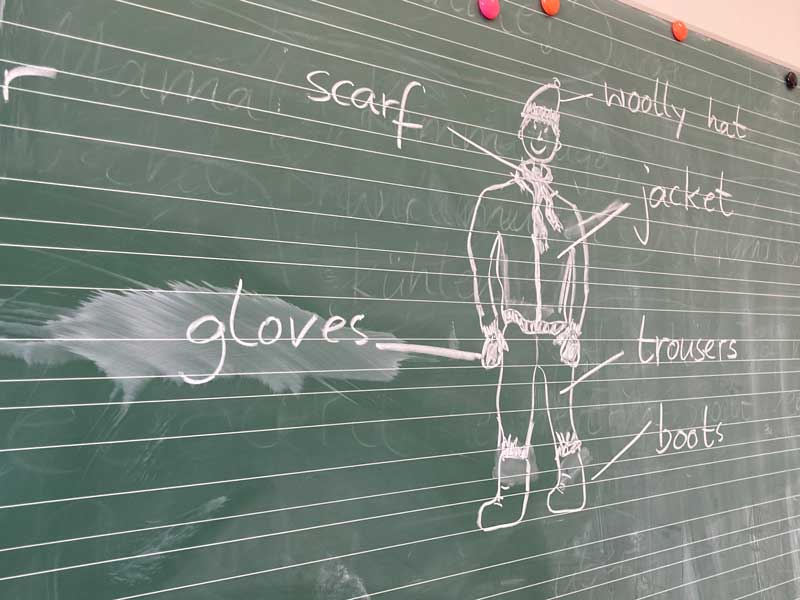 scarf
woolly hat
jacket
gloves
trousers
boots